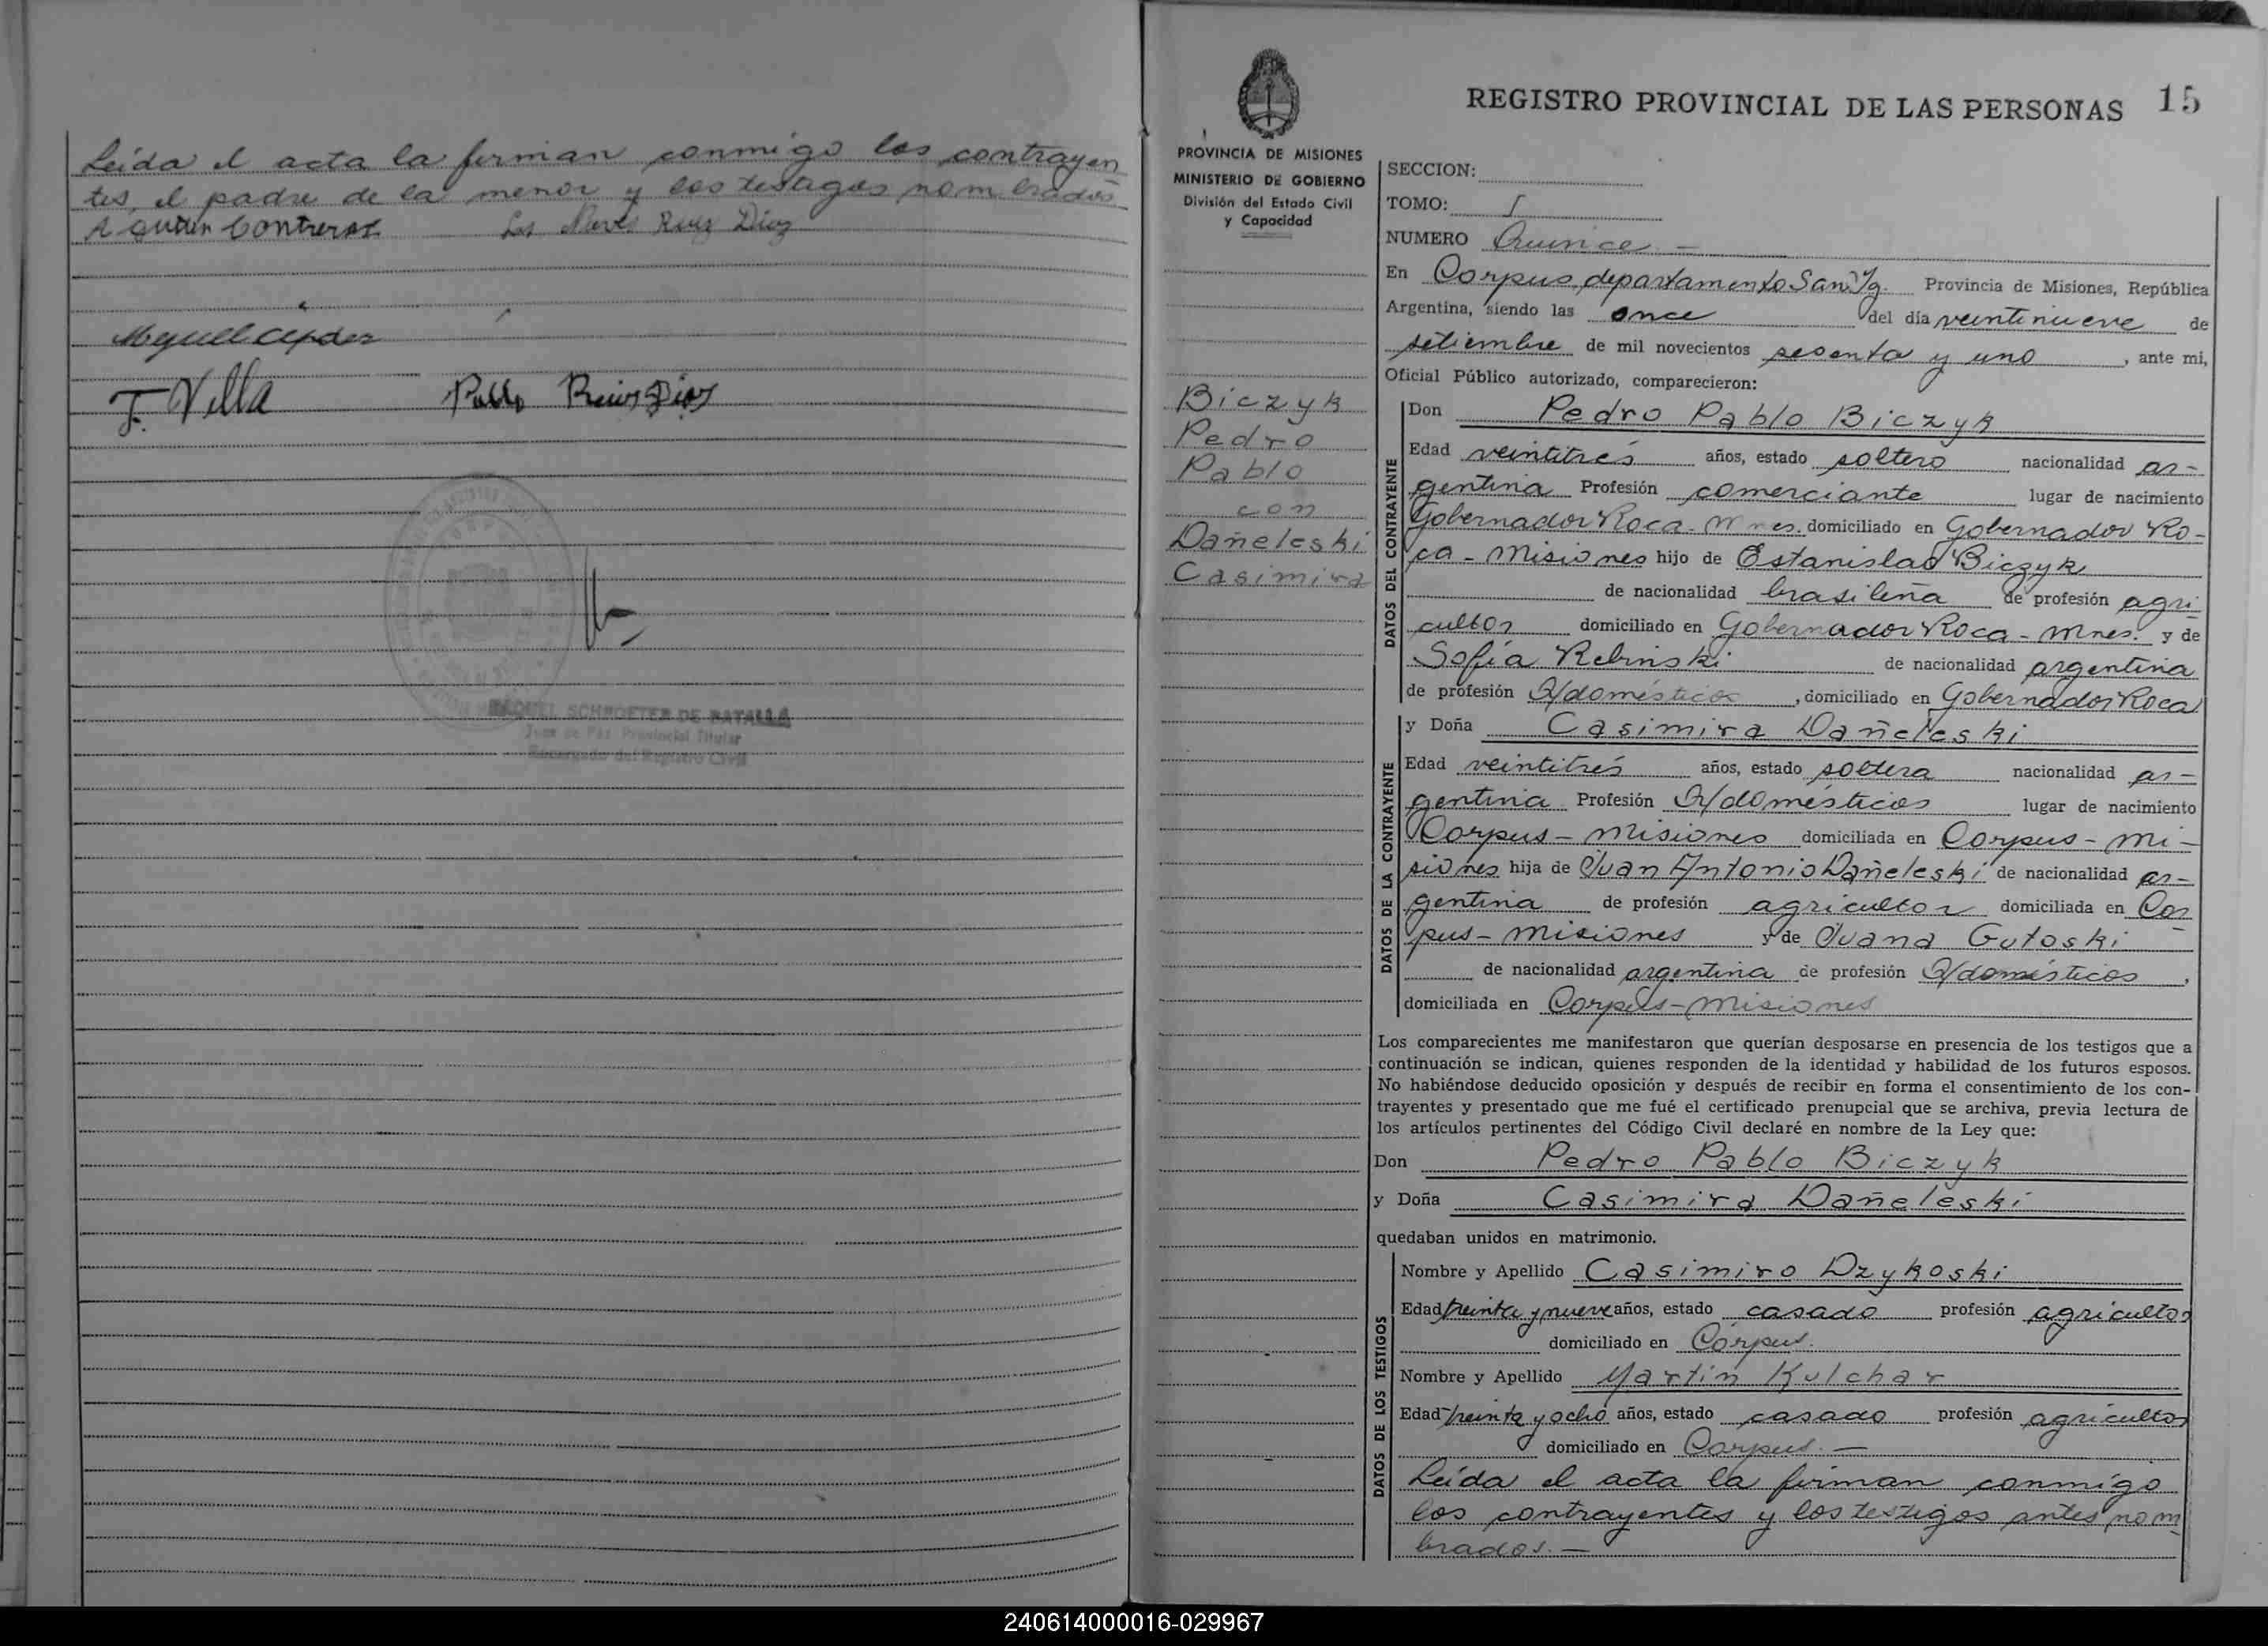 Leída el acta la firman conmigo los contrayen
tes, el padre de la menor y los testigos nombrados
Agustín Contreras Ruiz Díaz
F. Villa Pablo Ruiz Diaz
RAQUEL SCHROETER DE BATALLA
Juez de Paz Provincial Titular
Encargado del Registro Civil
PROVINCIA DE MISIONES
MINISTERIO DE GOBIERNO
División del Estado Civil
y Capacidad
Biczyk
Pedro
Pablo
con
Dañeleski
Casimira
REGISTRO PROVINCIAL DE LAS PERSONAS 15
SECCION:
TOMO: I
NUMERO Quince —
En Corpus, departamento San Ig. Provincia de Misiones, República
Argentina, siendo las once del día veintinueve de
setiembre de mil novecientos sesenta y uno, ante mi,
Oficial Público autorizado, comparecieron:
DATOS DEL CONTRAYENTE
Don Pedro Pablo Biczyk
Edad veintitrés años, estado soltero nacionalidad ar-
gentina Profesión comerciante lugar de nacimiento
Gobernador Roca - Mnes. domiciliado en Gobernador Ro-
ca - Misiones hijo de Estanislao Biczyk
de nacionalidad brasileña de profesión agri
cultor domiciliado en Gobernador Roca - Mnes. y de
Sofía Rebinski de nacionalidad argentina
de profesión Q/domésticos, domiciliado en Gobernador Roca
DATOS DE LA CONTRAYENTE
y Doña Casimira Dañeleski
Edad veintitrés años, estado soltera nacionalidad ar-
gentina Profesión Q/domésticos lugar de nacimiento
Corpus - Misiones domiciliada en Corpus - Mi-
siones hija de Juan Antonio Dañeleski de nacionalidad ar-
gentina de profesión agricultor domiciliada en Cor
pus - Misiones y de Juana Gutoski
de nacionalidad argentina de profesión Q/domésticos,
domiciliada en Corpus - Misiones
Los comparecientes me manifestaron que querían desposarse en presencia de los testigos que a
continuación se indican, quienes responden de la identidad y habilidad de los futuros esposos.
No habiéndose deducido oposición y después de recibir en forma el consentimiento de los con-
trayentes y presentado que me fué el certificado prenupcial que se archiva, previa lectura de
los artículos pertinentes del Código Civil declaré en nombre de la Ley que:
Don Pedro Pablo Biczyk
y Doña Casimira Dañeleski
quedaban unidos en matrimonio.
DATOS DE LOS TESTIGOS
Nombre y Apellido Casimiro Dzykoski
Edad treinta y nueve años, estado casado profesión agricultor
domiciliado en Corpus.
Nombre y Apellido Martín Kulchar
Edad treinta y ocho años, estado casado profesión agricultor
domiciliado en Corpus. —
Leída el acta la firman conmigo
los contrayentes y los testigos antes nom
brados. —
240614000016-029967